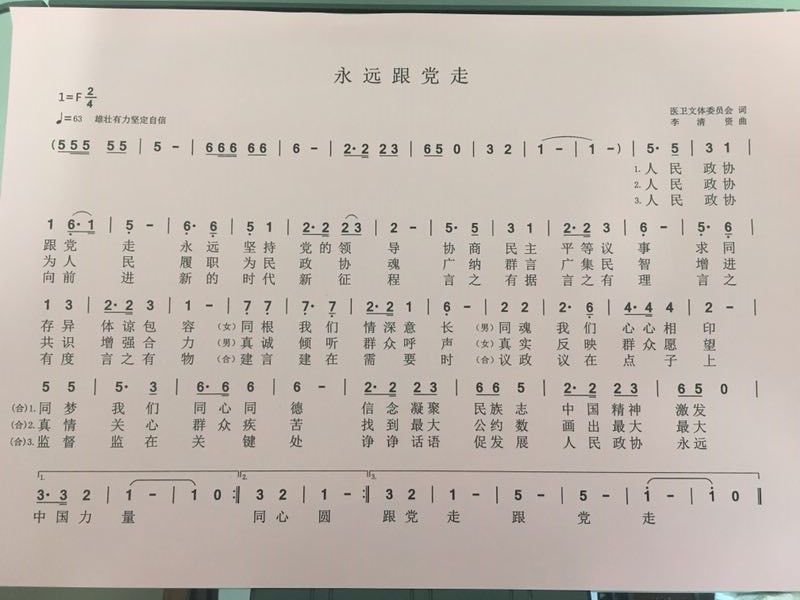 永远跟党走
1=F 2/4
♩=63 雄壮有力坚定自信
医卫文体委员会 词
李清赍 曲
(555 55 | 5 - | 666 66 | 6 - | 2·2 23 | 65 0 | 3 2 | 1 - | 1 - ) | 5· 5 | 3 1 |
1.人民 政协
2.人民 政协
3.人民 政协
1 6·1 | 5 - | 6· 6 | 5 1 | 2·2 23 | 2 - | 5· 5 | 3 1 | 2·2 3 | 5· 6 |
跟党 走 永远 坚持 党的领 导 协商 民主 平等议 事 求同
为人 民 履职 为民 政协 魂 广纳 群言 广集民 智 增进
向前 进 新的 时代 新征 程 言之 有据 言之有 理 言之
1 3 | 2·2 3 | 1 - | 7 7 | 7· 7 | 2·2 1 | 6 - | 2 2 | 2· 6 | 4·4 4 | 2 - |
存异 体谅包 容 (女)同根 我们 情深意 长 (男)同魂 我们 心心相 印
共识 增强合 力 (男)真诚 倾听 群众呼 声 (女)真实 反映 群众愿 望
有度 言之有 物 (合)建言 建在 需要 时 (合)议政 议在 点子 上
5 5 | 5· 3 | 6·6 6 | 5 - | 2·2 23 | 2·1 6 | 2·2 23 | 65 0 |
(合)1.同梦 我们 同心同 德 信念凝聚 民族志 中国精神 激发
(合)2.真情 关心 群众疾 苦 找到最大 公约数 画出最大 最大
(合)3.监督 监在 关键 处 诤诤话语 促发展 人民政协 永远
1.
2.
3·3 2 | 1 - | 1 0 :‖ 3 2 | 1 - :‖ 3 2 | 1 - | 5 - | 5 - | 1 - | 1 0 ‖
中国力 量 同心 圆 跟党 走 跟 党 走